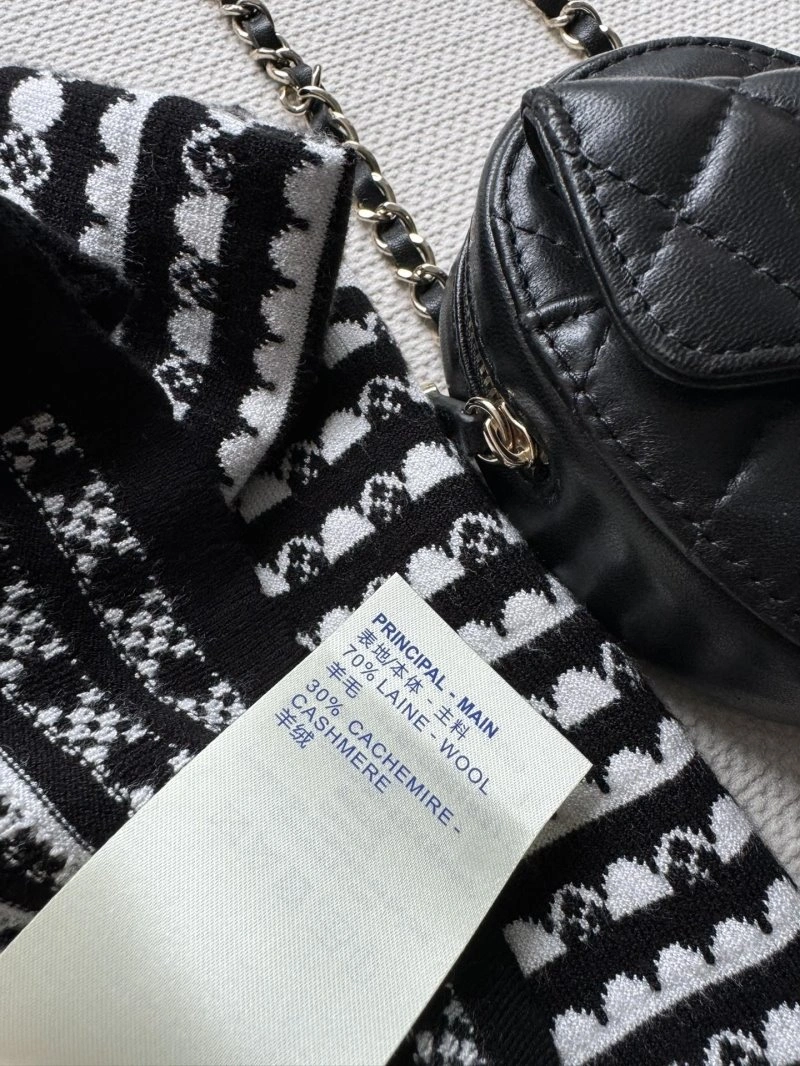 PRINCIPAL - MAIN
表地/本体 - 主料
70% LAINE - WOOL
羊毛
30% CACHEMIRE -
CASHMERE
羊绒